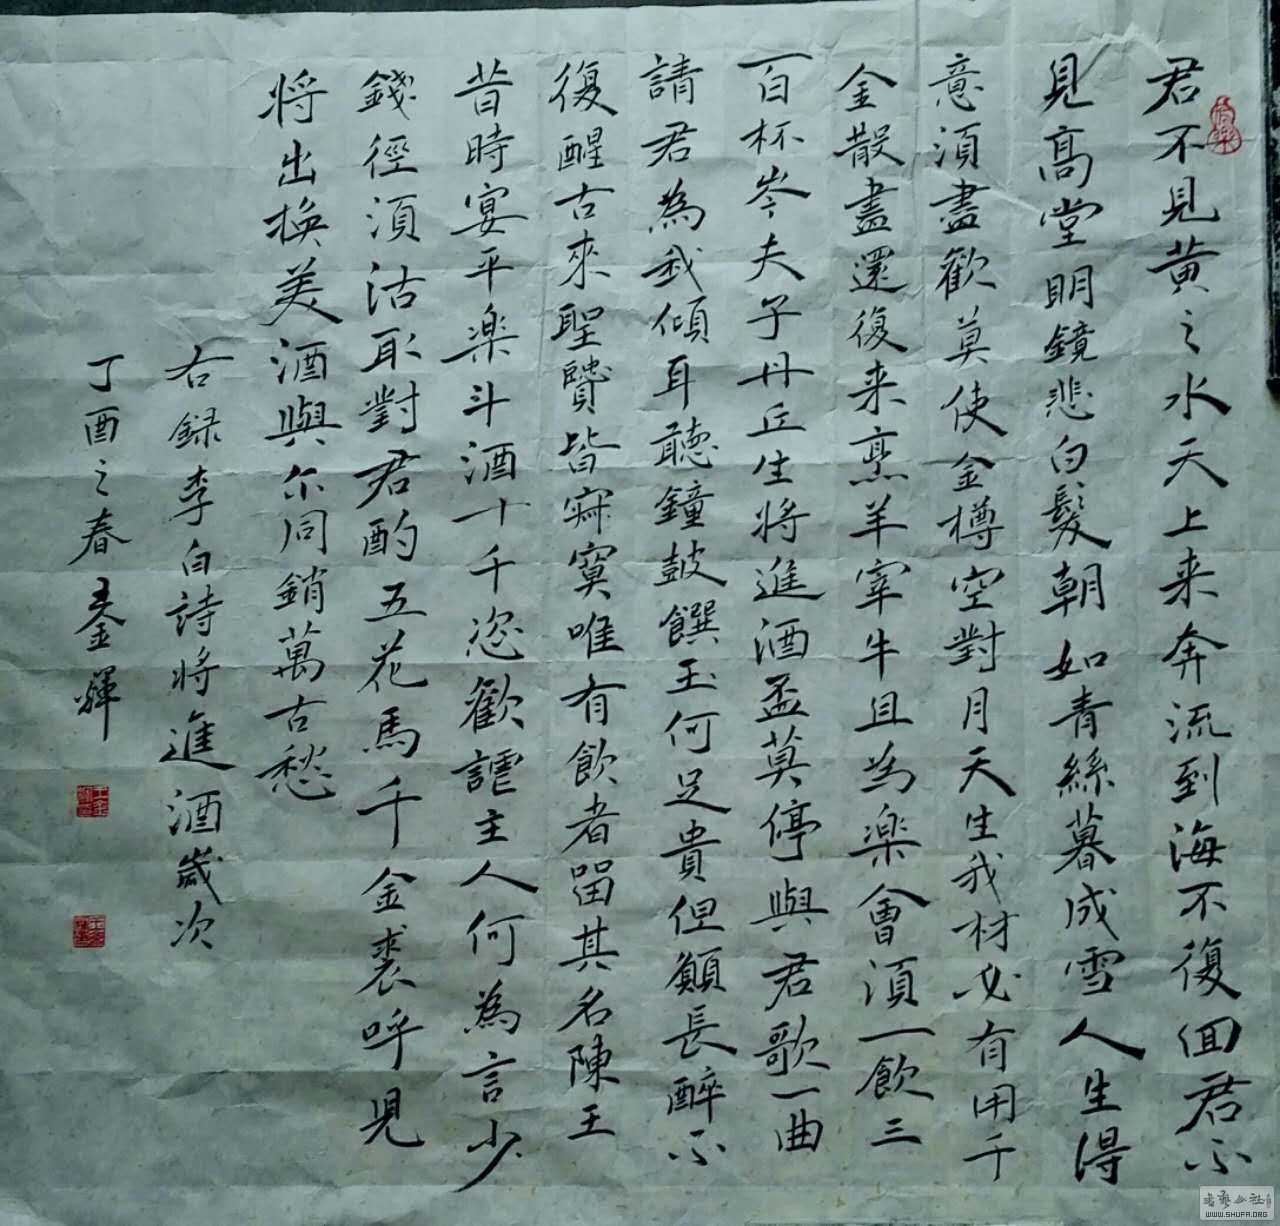 君不見黄之水天上来奔流到海不復回君不
見高堂明鏡悲白髮朝如青絲暮成雪人生得
意須盡歡莫使金樽空對月天生我材必有用千
金散盡還復来烹羊宰牛且為楽會須一飲三
百杯岑夫子丹丘生将進酒盃莫停與君歌一曲
請君為我傾耳聽鐘鼓饌玉何足貴但願長醉不
復醒古來聖賢皆寂寞唯有飲者留其名陳王
昔時宴平楽斗酒十千恣歡謔主人何為言少
錢徑須沽取對君酌五花馬千金裘呼児
将出換美酒與尔同銷萬古愁
右録李白詩将進酒歲次
丁酉之春
書藝公社
WWW.SHUFA.ORG